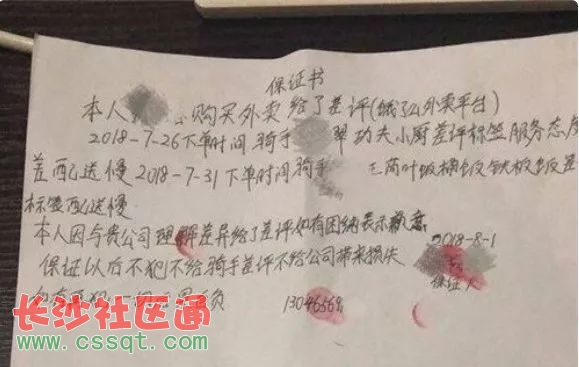 保证书
本人 购买外卖给了差评(饿了么外卖平台)
2018-7-26下单时间骑手 翠功夫小厨差评标签服务态度
差配送慢2018-7-31下单时间骑手 三荷叶饭桶饭铁板饭差
标签配送慢
本人因与贵公司理解差异给了差评如有困扰表示歉意
2018-8-1
保证以后不犯不给骑手差评不给公司带来损失
保证人
如有再犯一切 负
13046556
长沙社区通
www.cssqt.com